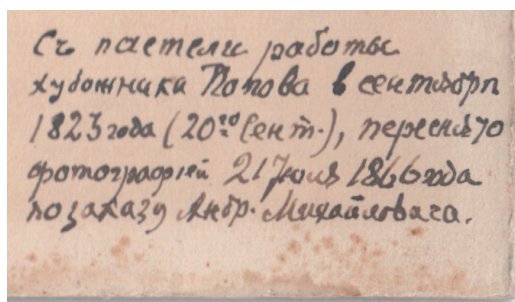 Съ пастели работы
художника Попова в сентябрѣ
1823 года (20го Сент.), переснято
фотографіей 21 Июля 1866 года
по заказу Андр. Михайловича.